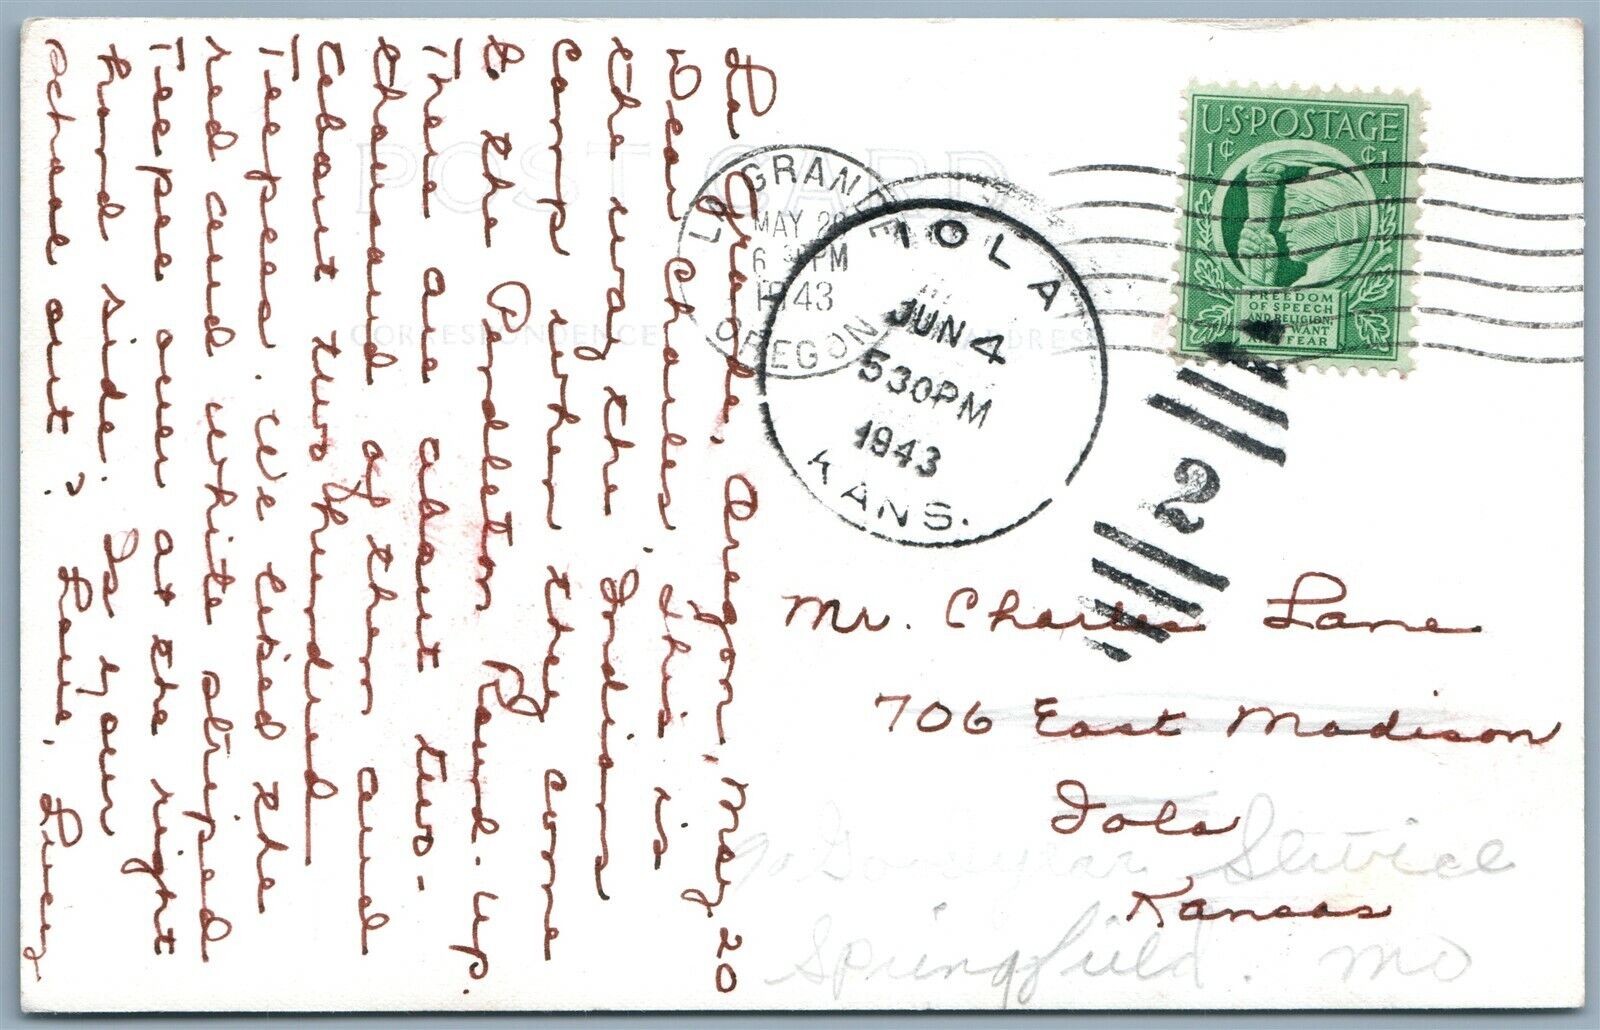 La Grande, Oregon, May 20
Dear Charles: this is
the way the Indians
camp when they come
to the Pendleton Round-up.
There are about two-
thousand of them and
about two hundred
Teepees. I've liked the
red and white striped
Teepee over at the right
hand side. Is your
school out? Love, Lucy.
POST CARD
CORRESPONDENCE
ADDRESS
LA GRANDE
MAY 2
6 PM
1943
OREGON
IOLA
JUN 4
530PM
1943
KANS.
2
U.S. POSTAGE
1¢ ¢1
FREEDOM
OF SPEECH
AND RELIGION,
WANT
AND FEAR
Mr. Charles Lane
706 East Madison
Iola
Kansas
% Goodyear Service
Springfield. Mo